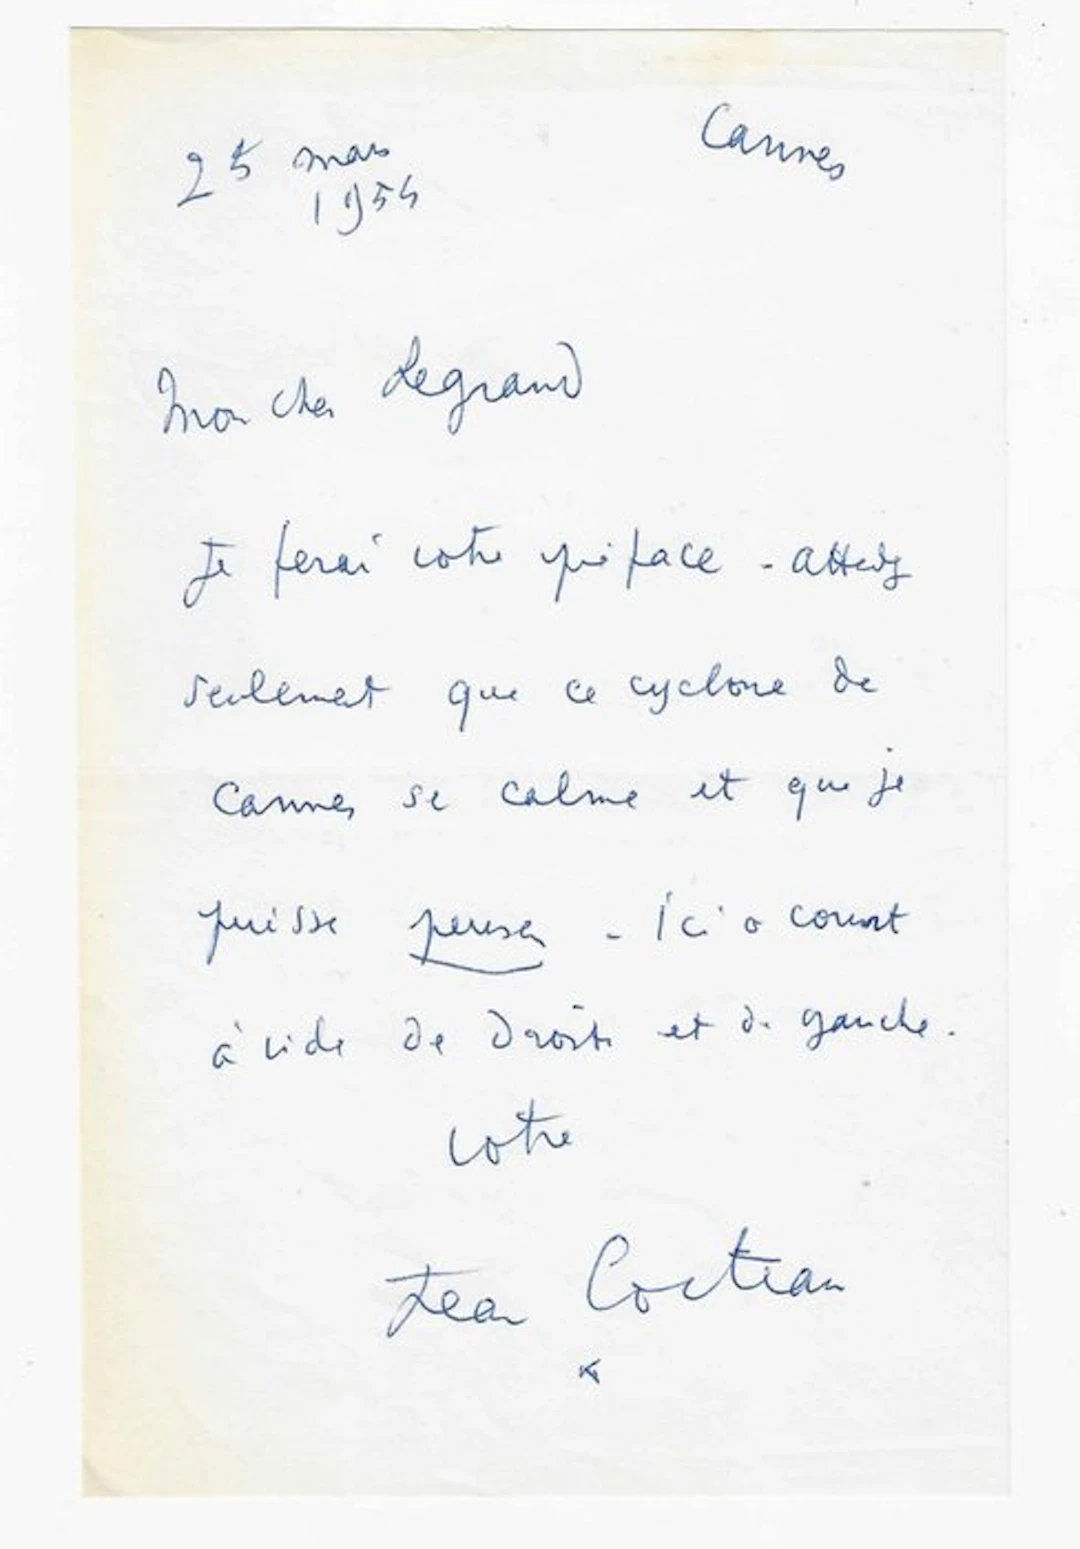 Cannes
25 mars
1954
Mon cher Legrand
Je ferai votre préface - Attendez
seulement que ce cyclone de
Cannes se calme et que je
puisse penser - Ici on court
à vide de droite et de gauche.
Votre
Jean Cocteau